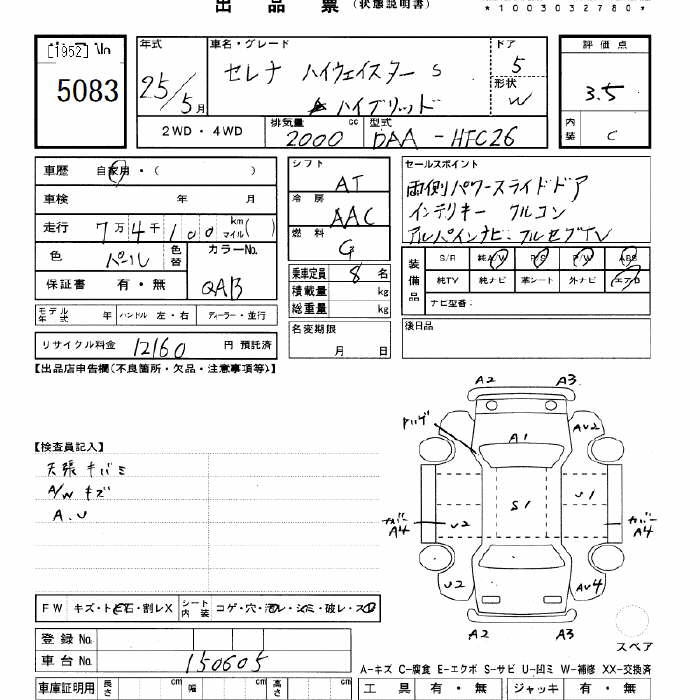 出品票(状態説明書)
*1003032780*
[1952] No
5083
年式
25/5月
車名・グレード
セレナ ハイウェイスター S
ハイブリッド
ドア
5
形状
W
評価点
3.5
内装
C
2WD・4WD
排気量
2000
cc
型式
DAA-HFC26
車歴 自家用・( )
車検 年 月
走行 7万4千100 km マイル( )
色 パール
色替
カラーNo.
QAB
保証書 有・無
シフト
AT
冷房
AAC
燃料
G
乗車定員 8名
積載量 kg
総重量 kg
セールスポイント
両側パワースライドドア
インテリキー フルコン
アルパインナビ・フルセグTV
装備品
S/R 純A/W P/S P/W ABS
純TV 純ナビ 革シート 外ナビ エアロ
ナビ型番:
モデル年式 年 ハンドル 左・右 ディーラー・並行
名変期限
月 日
後日品
リサイクル料金 12160 円 預託済
【出品店申告欄(不良箇所・欠品・注意事項等)】
A2 A3
AU2
A1
【検査員記入】
天張キバミ
A/Wキズ
A.U
S1
U1
カバー
A4
U2
カバー
A4
U2
AU4
A2 A3
FW キズ・トビ石・割レX
シート内装 コゲ・穴・汚レ・シミ・破レ・スレ
スペア
登録No.
車台No. 150605
A-キズ C-腐食 E-エクボ S-サビ U-凹ミ W-補修 XX-交換済
車庫証明用 長さ cm 幅 cm 高さ cm
工具 有・無 ジャッキ 有・無